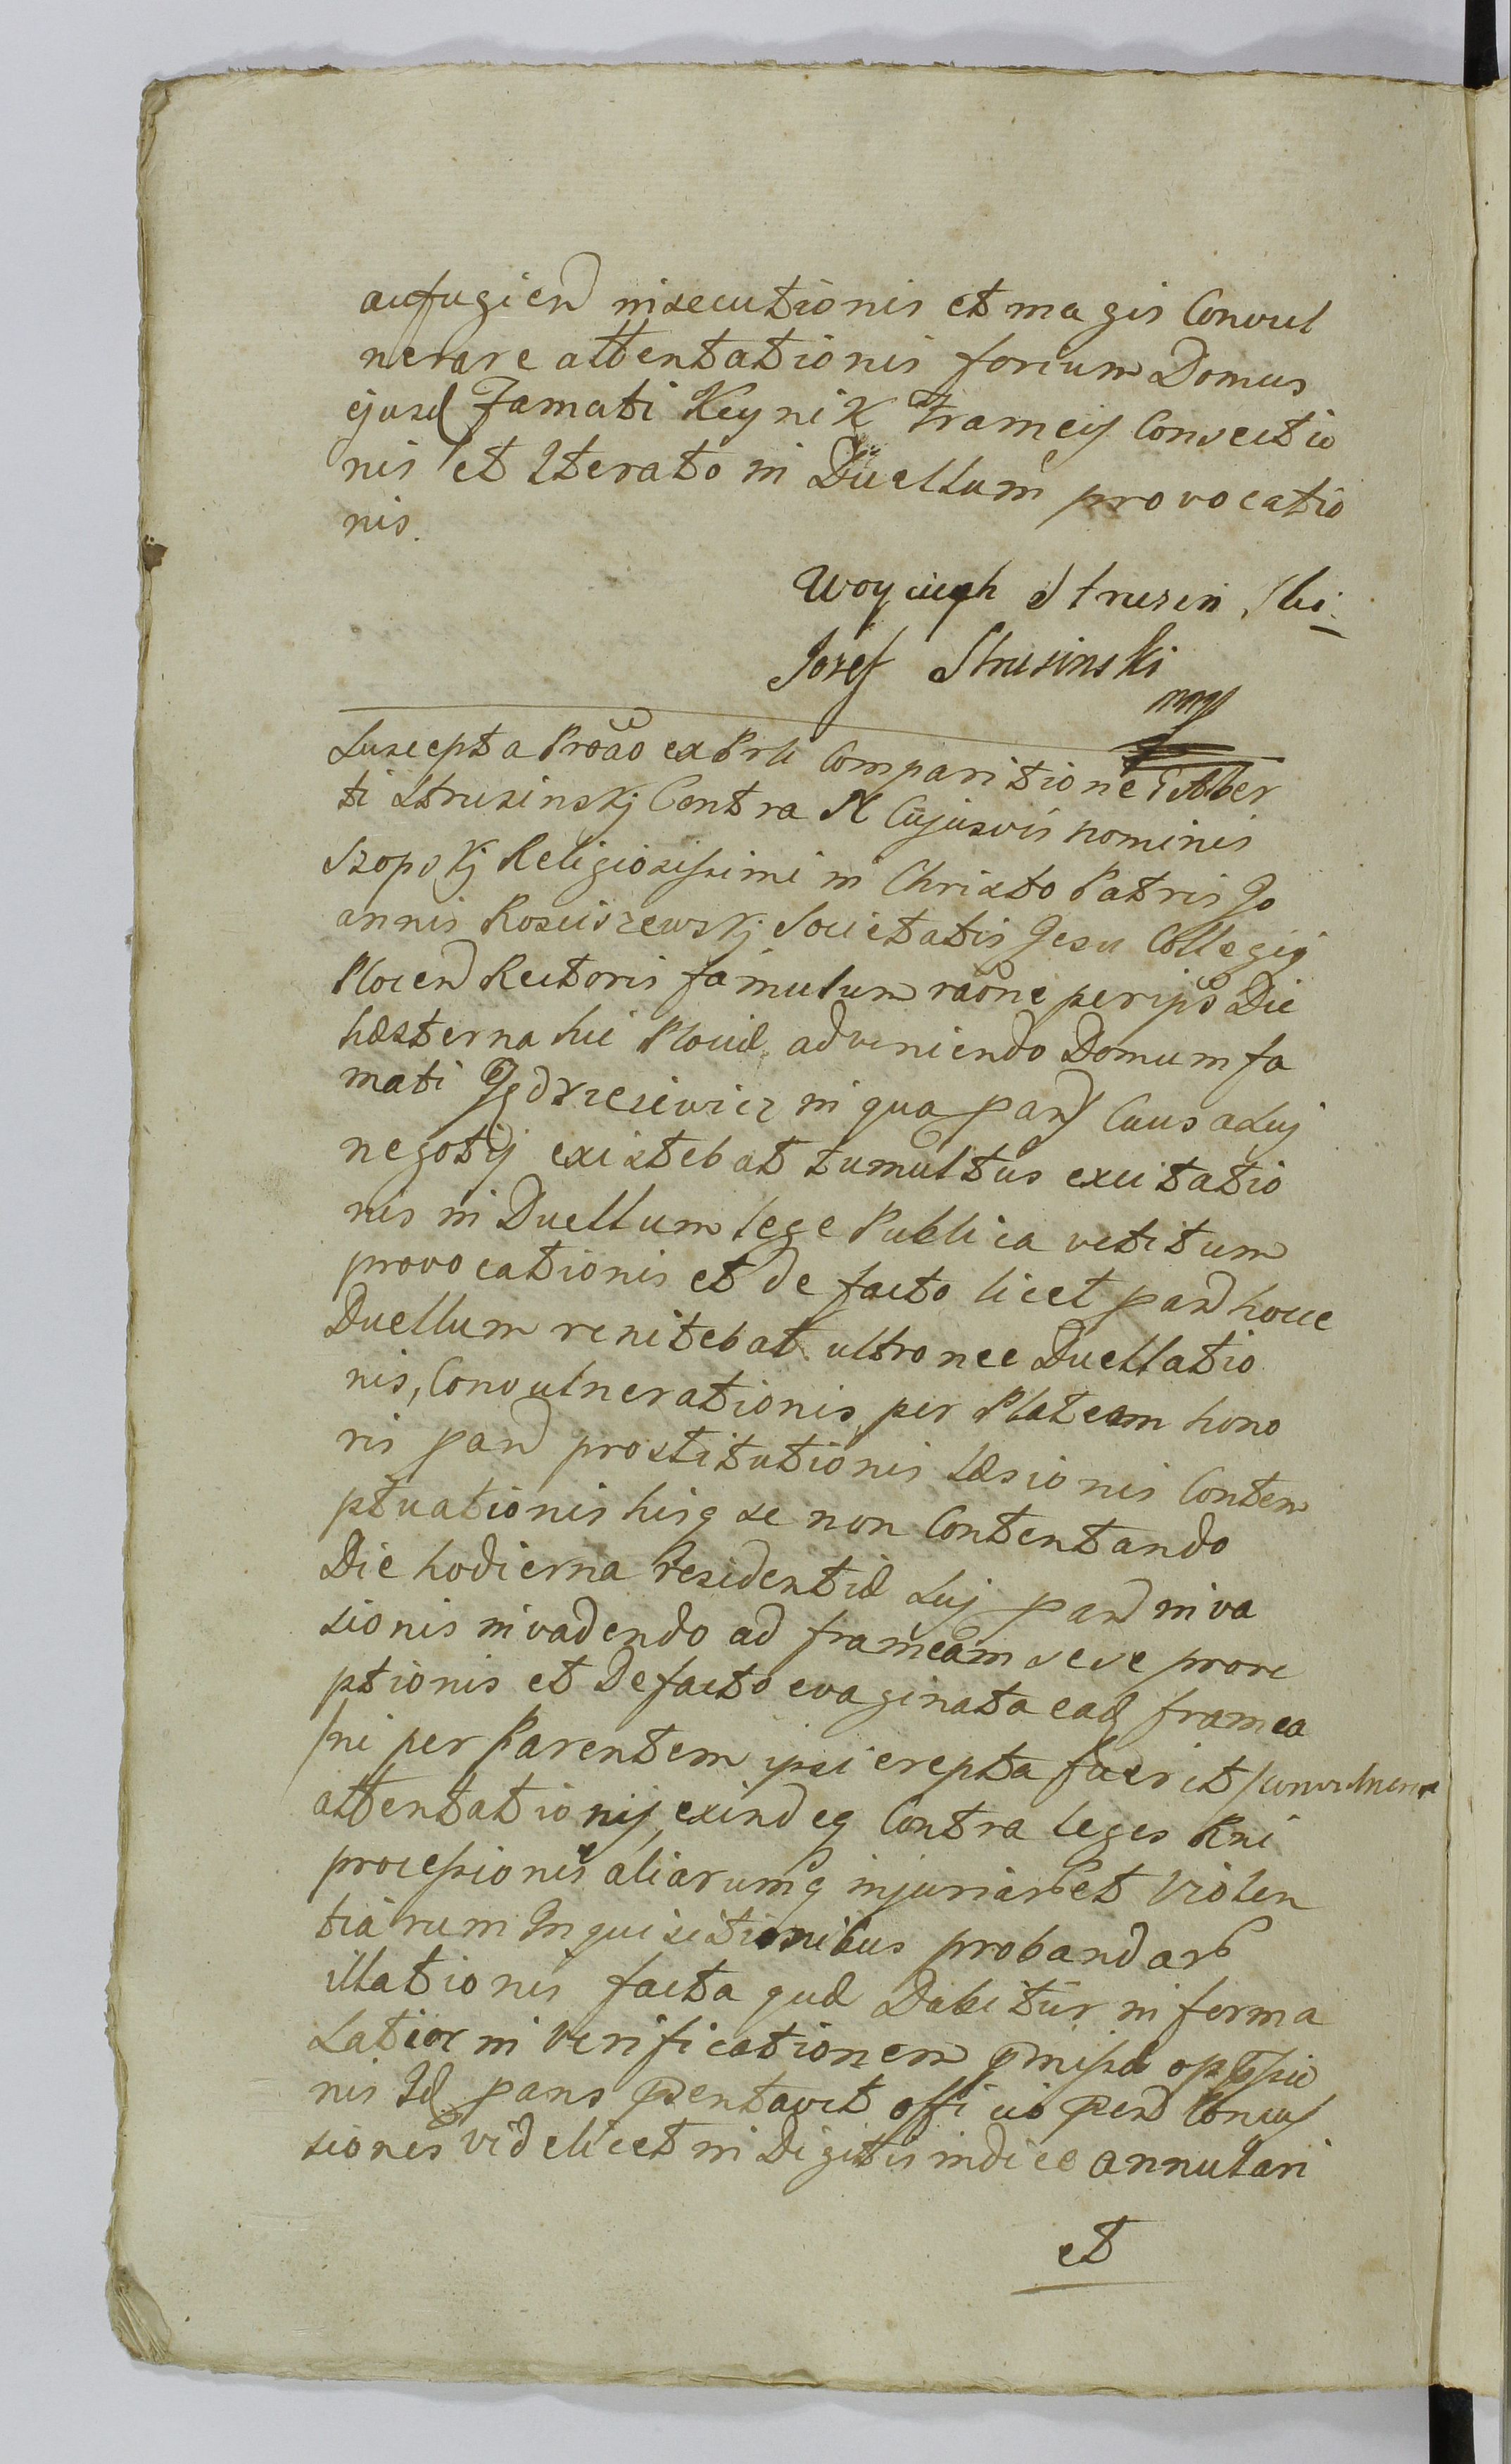 aufugien insecutionis et magis Convul
nerare attentationis forium Domus
ejusd Famati Keynik Frameis Consectio
nis et Iterato in Duellum provocatio
nis.
Woyciech Strusin Ski
Jozef Strusinski
mp
Suscepta Proāo ex Prli Comparitione G Alber
ti Strusinskj Contra N Cujusvis nominis
Szopskj Religiosissimi in Christo Patris Jo
annis Rosciszewskj Societatis Jesu Collegij
Plocen Rectoris famulum raōne per ips Die
hesterna hic Plociæ adveniendo Domum fa
mati Jędrzeiewicz in qua pan Causa suj
negotij existebat tumultus excitatio
nis in Duellum lege Publica vetitum
provocationis et de facto licet pan hocce
Duellum renitebat ultronee Duellatio
nis, Convulnerationis per Plateam hono
ris pan prostitutionis læsionis Contem
ptuationis hisq se non Contentando
Die hodierna residentiæ suj pan inva
sionis invadendo ad frameam sese prore
ptionis et Defacto evaginata ead framea
/ni per Parentem ipsi erepta fuerit/ convulnerare
attentationis, exindeq Contra leges Rni
processionis aliarumq injuriar et Violen
tiarum Inquisitionibus probandar
illationis facta quæ Dabitur in forma
Latior in Verificationem præmissæ oppressio
nis Id pans præsentavit officio præsen Concus
siones videlicet in Digitis indice annulari
et